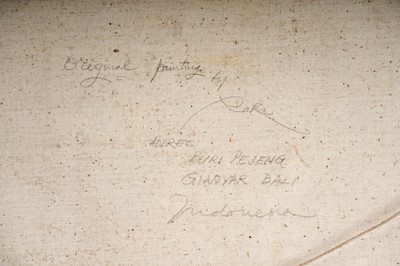 Original painting by
Raka
ADRES:
PURI PEJENG
GIANYAR BALI
Indonesia